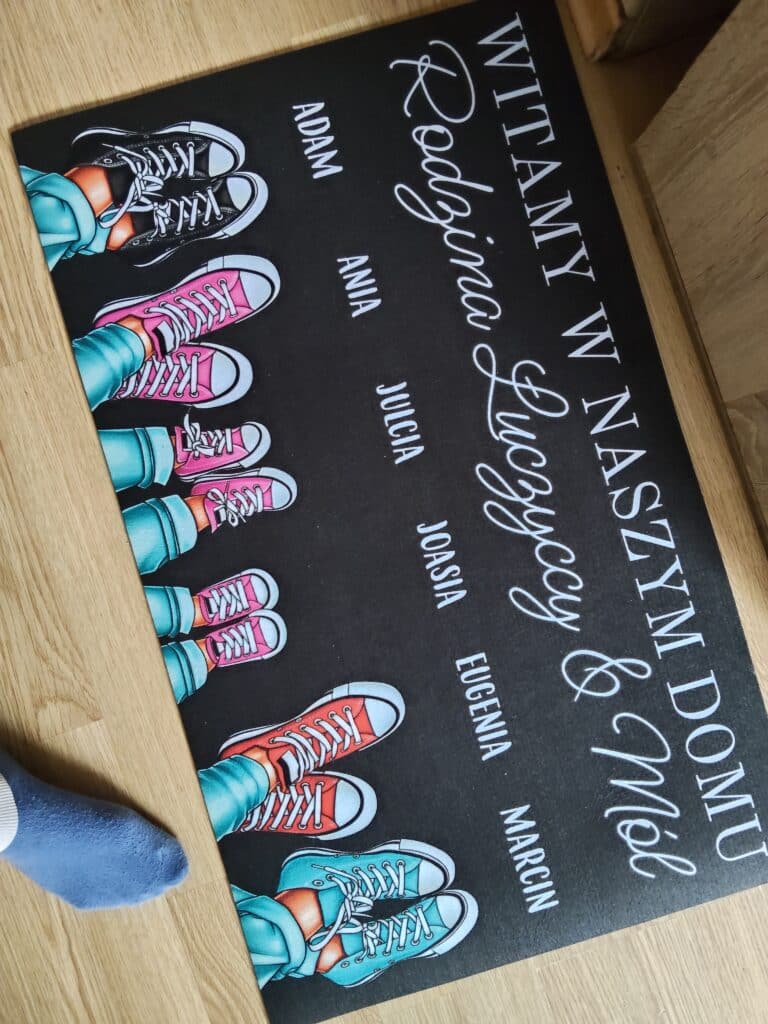 WITAMY W NASZYM DOMU
Rodzina Luczyccy & Mól
ADAM ANIA JULCIA JOASIA EUGENIA MARCIN